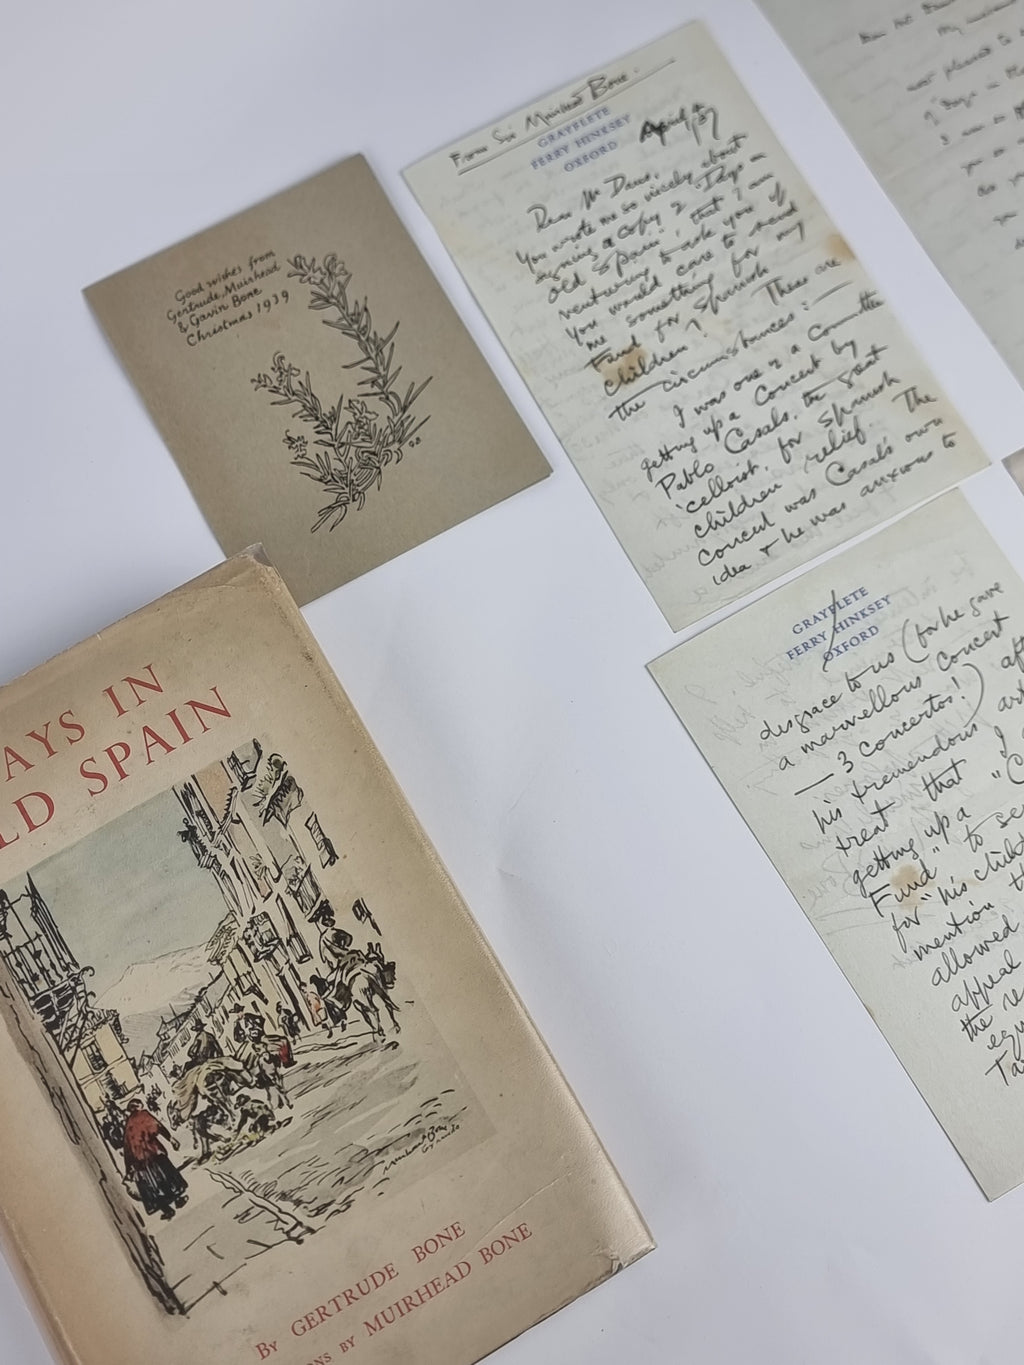 Good wishes from
Gertrude, Muirhead
& Gavin Bone
Christmas 1939
GB
From Sir Muirhead Bone.
GRAYFLETE
FERRY HINKSEY
OXFORD
April /37
Dear Mr
You wrote me so nicely about
signing a copy of "Days in
Old Spain", that I am
venturing to ask you if
you would care to send
me something for my
Fund for Spanish
children? These are
the circumstances: —
I was one of a Committee
getting up a Concert by
Pablo Casals, the great
'cellist, for Spanish
children relief. The
Concert was Casals' own
idea & he was anxious to
GRAYFLETE
FERRY HINKSEY
OXFORD
disgrace to us (for he gave
a marvellous concert
— 3 concertos!)
his tremendous
treat that I
getting up a "C
Fund" to se
for "his child
mention th
allowed
appeal
the re
AYS IN
LD SPAIN
Muirhead Bone
By GERTRUDE BONE
ONS BY MUIRHEAD BONE